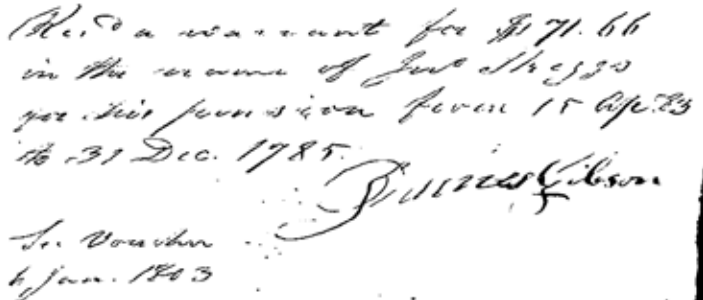 Rec'd a warrant for $71.66
in the name of Jno Skeggs
for his pension from 15 Ap. 83
to 31 Dec. 1785.
James Gibson
Se. Voucher
6 Jan. 1803